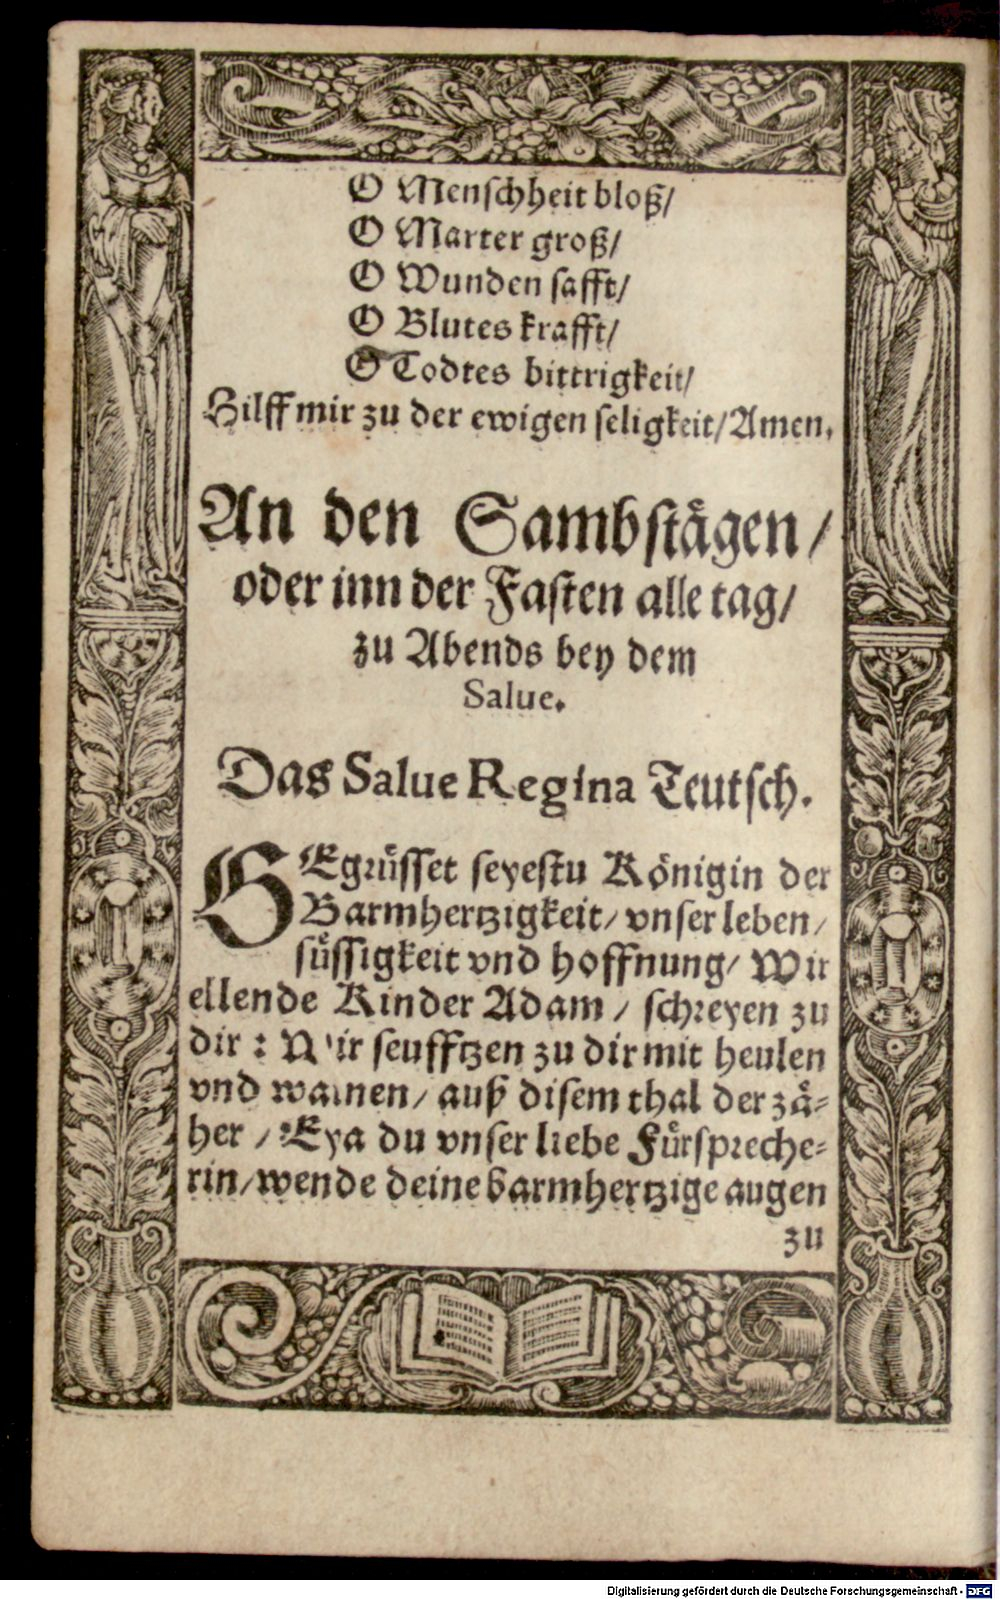 O Menschheit bloß/
O Marter groß/
O Wunden safft/
O Blutes krafft/
O Todtes bittrigkeit/
Hilff mir zu der ewigen seligkeit/ Amen.
An den Sambstågen/
oder inn der Fasten alle tag/
zu Abends bey dem
Salue.
Das Salue Regina Teutsch.
GEgrüsset seyestu Königin der
Barmhertzigkeit/ vnser leben/
süssigkeit vnd hoffnung/ Wir
ellende Kinder Adam / schreyen zu
dir : Wir seufftzen zu dir mit heulen
vnd wainen/ auß disem thal der zä-
her / Eya du vnser liebe Fürspreche-
rin/ wende deine barmhertzige augen
zu
Digitalisierung gefördert durch die Deutsche Forschungsgemeinschaft - DFG